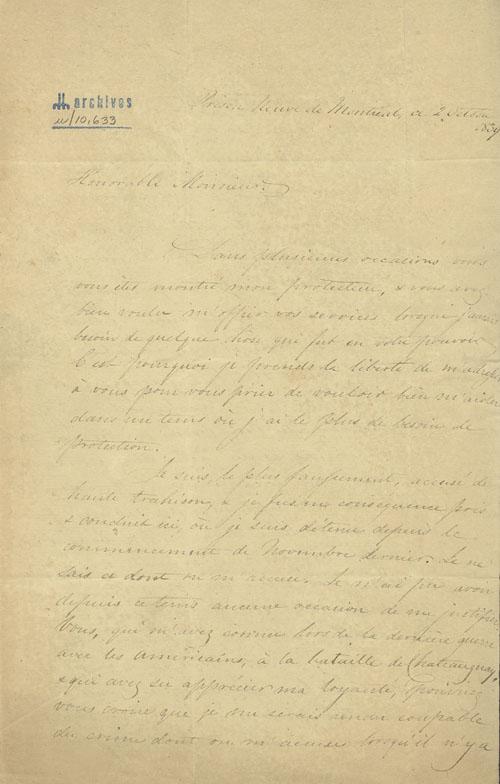 archives
10,633
Prison Neuve de Montréal, ce 2 Octobre
1839
Honorable Monsieur.
Dans plusieurs occasions vous
vous êtes montré mon protecteur, & vous avez
bien voulu m'offrir vos services lorsque j'aurais
besoin de quelque chose qui fut en votre pouvoir
C'est pourquoi je prends la liberté de m'adresser
à vous pour vous prier de vouloir bien m'aider
dans un tems où j'ai le plus de besoin de
protection.
Je suis, le plus faussement, accusé de
haute trahison, & je fus en conséquence pris
& conduit ici, où je suis détenu depuis le
commencement de Novembre dernier. Je ne
sais ce dont on m'accuse. Je n'ai pu avoir
depuis ce tems aucune occasion de me justifier
Vous, qui m'avez connu lors de la dernière guerre
avec les américains, à la bataille de Chateauguay,
& qui avez su apprécier ma loyauté,
vous croire que je me serais rendu coupable
du crime dont on m'accuse lorsqu'il n'y a